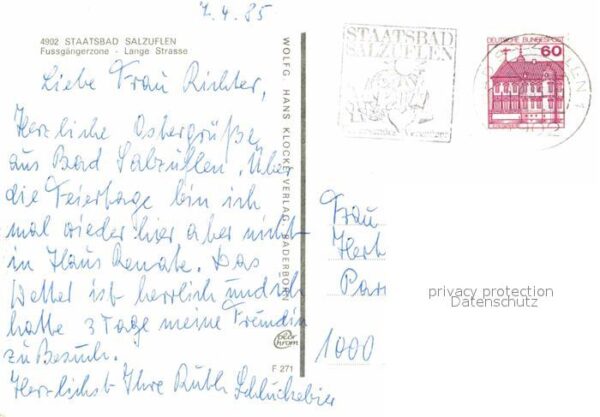 7.4.85
4902 STAATSBAD SALZUFLEN
Fussgängerzone - Lange Strasse
Liebe Frau Richter,
Herzliche Ostergrüße
aus Bad Salzuflen. Über
die Feiertage bin ich
mal wieder hier aber nicht
in Haus Renate. Das
Wetter ist herrlich und ich
hatte 3 Tage meine Freundin
zu Besuch.
Herzlichst Ihre Ruth
WOLFG. HANS KLOCKE VERLAG PADERBORN
color chrom
F 271
STAATSBAD
SALZUFLEN
DEUTSCHE BUNDESPOST
60
4902
Frau
Herb
Par
privacy protection
Datenschutz
1000